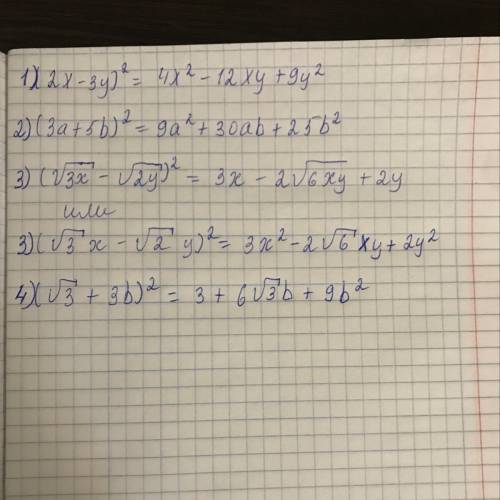 1)(2x-3y)² = 4x² - 12xy + 9y²
2)(3a+5b)² = 9a² + 30ab + 25b²
3)(√3x - √2y)² = 3x - 2√6xy + 2y
или
3)(√3 x - √2 y)² = 3x² - 2√6 xy + 2y²
4)(√3 + 3b)² = 3 + 6√3b + 9b²